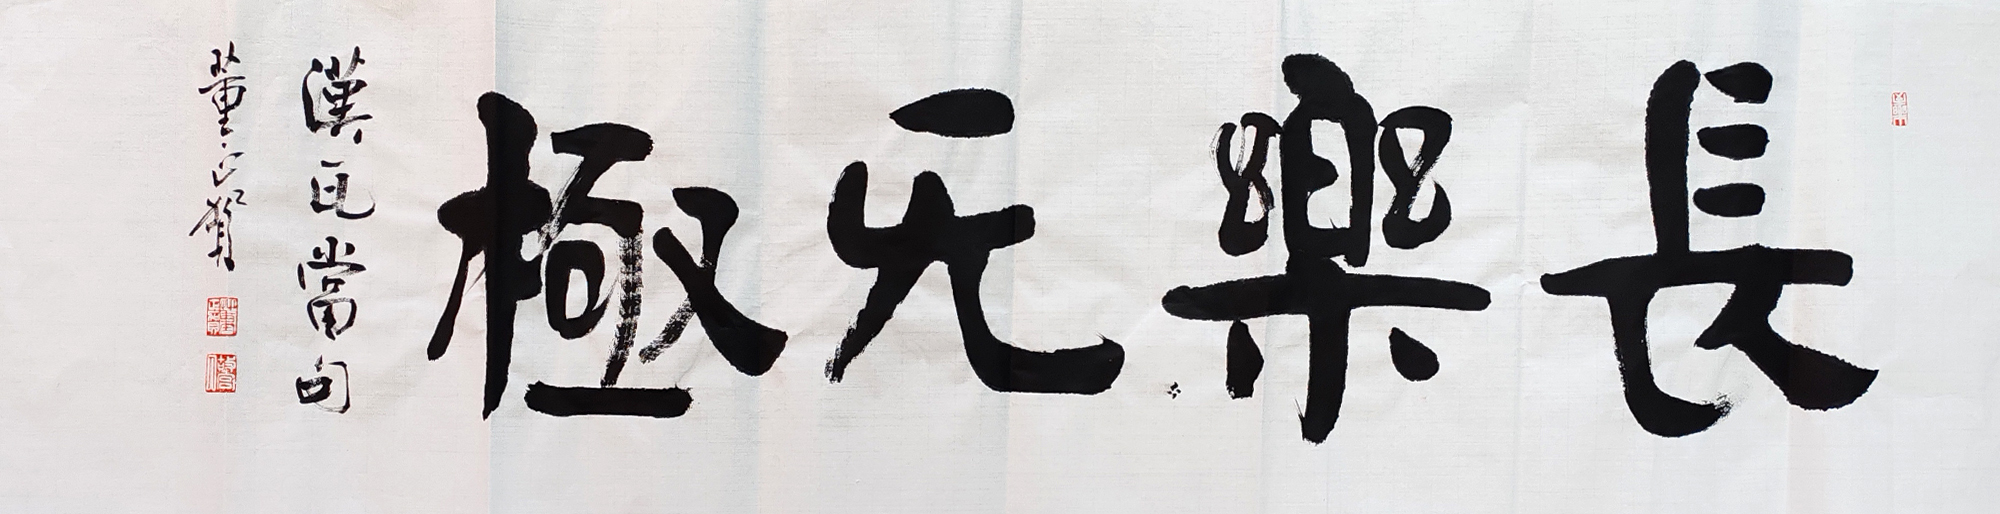 長樂无極
漢瓦當句
董正賀